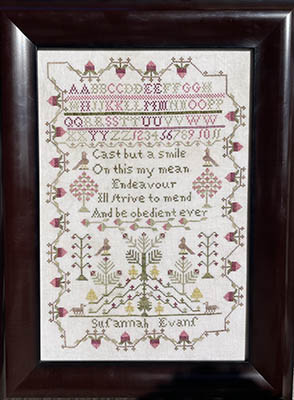 AABBCCDDEEFFGGH
HIJKKLLMMNNOOPP
QQRRSSTTUUVVWW
YYZZ1234567891011
Cast but a smile
On this my mean
Endeavour
Ill strive to mend
And be obedient ever
Susannah Evans